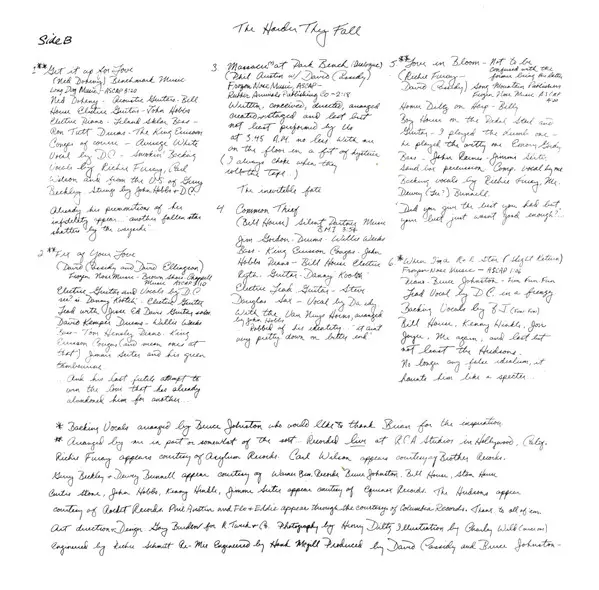 The Harder They Fall
Side B
1 ** Get it up for Love
(Ned Doheny) Benchmark Music
Long Dog Music - ASCAP 5:20
Ned Doheny - Acoustic Guitars - Bill
House Electric Guitar - John Hobbs
Electric Piano - Leland Sklar Bass -
Ron Tutt Drums - The King Ericson
Congas of course - Average White
Vocal by D.C. - Smokin' Backing
Vocals by Richie Furay, Carl
Wilson and from the U.S. of Gerry
Beckley Strings by John Hobbs & D.C.
Already his premonitions of his
infidelity appear another fallen star
shatters by the wayside
2 ** Fix of Your Love
(David Cassidy and David Ellingson)
Frozen Noses Music - Brown Shoes - Chappell
Music ASCAP
Electric Guitars and Vocals by D.C.
Danny Kootch - Electric Guitar
Lead with Jesse Ed Davis Guitar solos
David Kemper Drums - Willie Weeks
Bass - Tom Hensley Piano - King
Ericson Congas (and mean ones at
that) Jimmie Seiter and his green
tambourine
And his last futile attempt to
win the love that has already
abandoned him for another...
3 Massacre at Park Bench (Dialogue)
(Phil Austin w/ David Cassidy)
Frozen Noses Music, ASCAP -
Rubber Animals Publishing Co - 2:18
Written, conceived, directed, arranged
created + staged and last but
not least performed by us
at 3:45 A.M. no less with me
on the floor in a fit of hysteria
(I always choke when they
roll the tape.)
The inevitable fate
4 Common Thief
(Bill House) Silent Partner Music
BMI 3:54
Jim Gordon - Drums - Willie Weeks
Bass - King Ericson Congas - John
Hobbs Piano - Bill House Electric
Gtr - Guitar - Danny Kootch
Electric Lead Guitar - Steve
Douglas Sax - Vocal by Da sdy
With the Van Nuys Horns, arranged
by John Hobbs
Robbed of his identity - it ain't
very pretty down on butter end
5 ** Love in Bloom - Not to be
confused with the
former being the latter
(Richie Furay -
David Cassidy) Song Mountain Publishers
Frozen Noses Music ASCAP
4:20
Home Delty on Harp - Billy
Boy House on the Pedal Steel and
Guitar - I played the dumb one -
he played the witty one Emory Gordy
Bass - John Raines - Jimmie Seiter
Sand in percussion Comp. vocal by me
Backing vocals by Richie Furay, Mr.
Dewey (Lee!) Bunnell
"Did you give the best you had but,
your best just wasn't good enough?"
6 * When I'm a R & R Star (Slight Return)
Frozen Noses Music - ASCAP 1:20
Piano - Bruce Johnston - Fun Fun Fun
Lead Vocal by D.C. in a frenzy
Backing Vocals by B.J. (Fun Fun)
Bill House, Kenny Hinkle, Jon
Joyce, Me again, and last but
not least the Hudsons.
No longer any false idealism, it
haunts him like a specter...
* Backing Vocals arranged by Bruce Johnston who would like to thank Brian for the inspiration.
** Arranged by me in part or somewhat of the sort - Recorded live at RCA Studios in Hollywood, Calif.
Richie Furay appears courtesy of Asylum Records. Carl Wilson appears courtesy of Brother Records.
Gerry Beckley & Dewey Bunnell appear courtesy of Warner Bros. Records. Bruce Johnston, Bill House, Stan House
Curtis Stone, John Hobbs, Kenny Hinkle, Jimmie Seiter appear courtesy of Equinox Records. The Hudsons appear
courtesy of Rocket Records. Phil Austin and Flo & Eddie appear through the courtesy of Columbia Records. Thanx to all of em.
Art direction + Design Gary Burden for R. Twerk & Co. Photography by Henry Diltz, Illustration by Charley Wild
Engineered by Richie Schmitt Re-Mix Engineered by Hank McGill Produced by David Cassidy and Bruce Johnston -